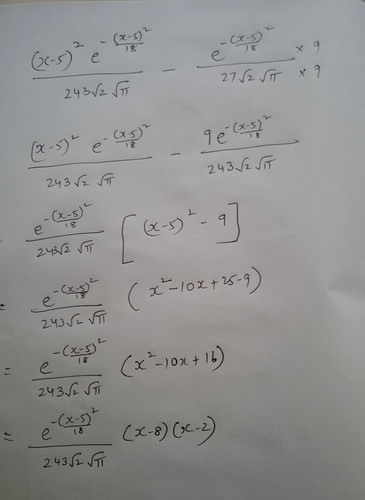 (x-5)² e^-(x-5)²/18 / 243√2 √π - e^-(x-5)²/18 × 9 / 27√2 √π × 9
(x-5)² e^-(x-5)²/18 / 243√2 √π - 9e^-(x-5)²/18 / 243√2 √π
- e^-(x-5)²/18 / 243√2 √π [(x-5)² - 9]
= e^-(x-5)²/18 / 243√2 √π (x²-10x+25-9)
= e^-(x-5)²/18 / 243√2 √π (x²-10x+16)
= e^-(x-5)²/18 / 243√2 √π (x-8)(x-2)